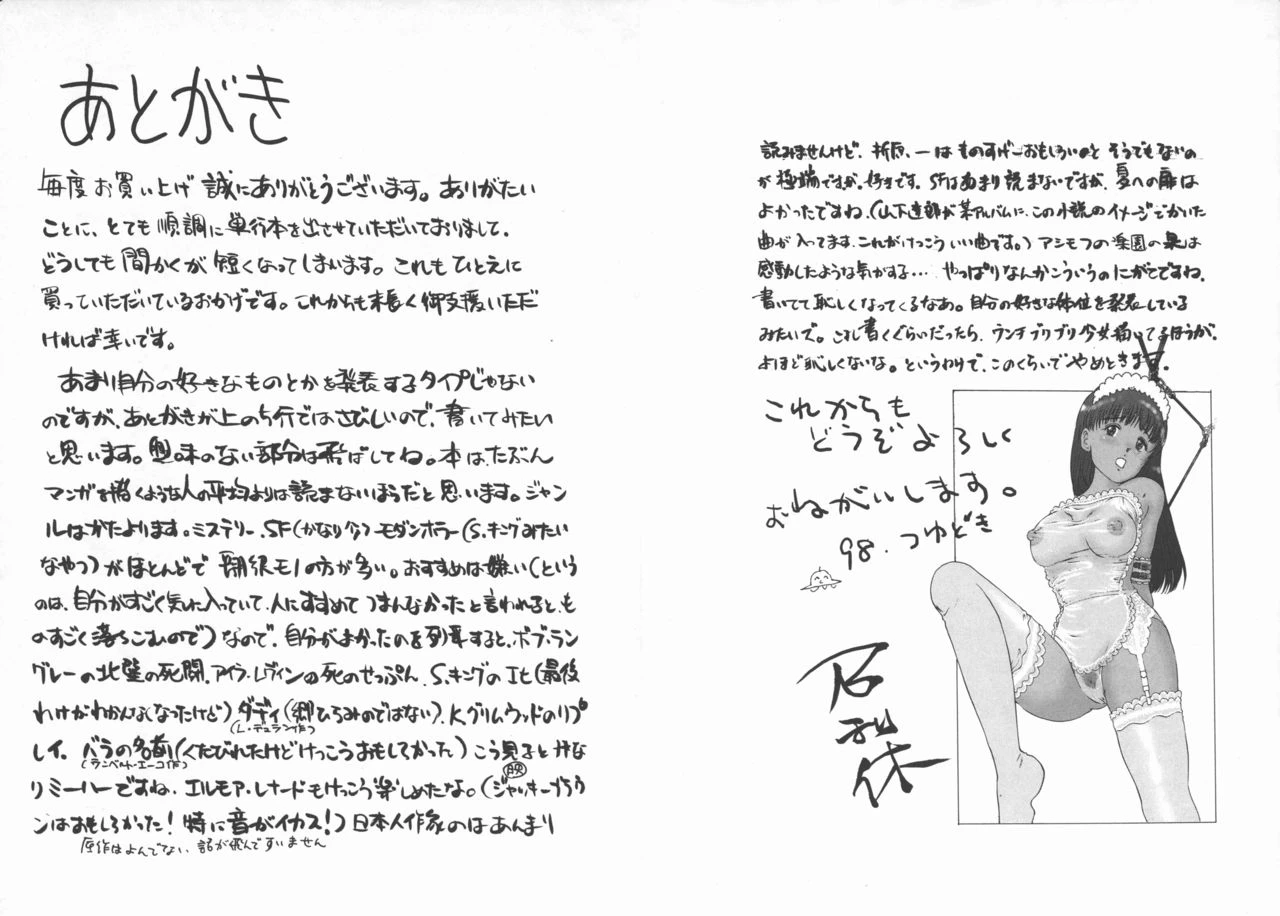 あとがき
毎度お買い上げ 誠にありがとうございます。ありがたい
ことに、とても順調に単行本を出させていただいておりまして、
どうしても間かくが短くなってしまいます。これもひとえに
買っていただいているおかげです。これからも末長く御支援いただ
ければ幸いです。
あまり自分の好きなものとかを発表するタイプじゃない
のですが、あとがきが上の5行ではさびしいので、書いてみたい
と思います。興味のない部分は飛ばしてね。本は、たぶん
マンガを描くような人の平均よりは読まないほうだと思います。ジャン
ルはかたよります。ミステリー、SF(かなり少)モダンホラー(S.キングみたい
なやつ)がほとんどで 翻訳モノの方が多い。おすすめは嫌い(という
のは、自分がすごく気に入っていて、人にすすめてつまんなかったと言われると、も
のすごく落ちこむので)なので、自分がよかったのを列挙すると、ボブ・ラン
グレーの北壁の死闘、アイラ・レヴィンの死のせっぷん、S.キングのIt(最後
わけがわかんなくなったけど)ダディ(郷ひろみのではない)、K.グリムウッドのリプ
(L・デュラン作)
レイ、バラの名前(くたびれたけどけっこうおもしろかった)こう見ると みな
(ランベルト・エーコ作)
りミーハーですね、エルモア・レナードもけっこう楽しめたな。(ジャッキーブラウ
映
ンはおもしろかった!特に音がイカス!)日本人作家のはあんまり
原作はよんでない 話が飛んですいません
読みませんけど、折原、一はものすげーおもしろいのと そうでもないの
が極端ですが、好きです。SFはあまり読まないですが、夏への扉は
よかったですね。(山下達郎が某アルバムに、この小説のイメージでかいた
曲が入ってます、これがけっこういい曲です。)アシモフの楽園の泉は
感動したような気がする… やっぱりなんかこういうのにがてですね、
書いてて恥しくなってくるなあ。自分の好きな体位を発表している
みたいで。これ書くぐらいだったら、ウンチブリブリ少女描いてるほうが、
よほど恥しくないな。というわけで、このくらいでやめときます。
これからも
どうぞよろしく
おねがいします。
98.つゆどき